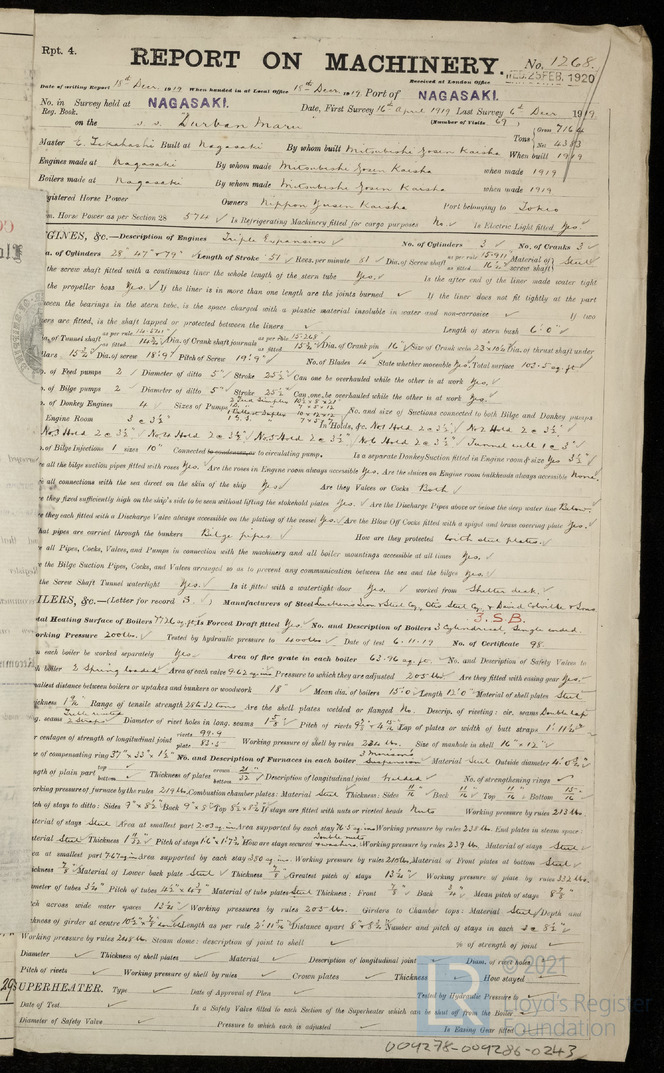 Rpt. 4.
REPORT ON MACHINERY.
No. 1268.
WED. 25 FEB. 1920
Received at London Office
Date of writing Report 18th Decr 1919 When handed in at Local Office 18th Decr 1919 Port of NAGASAKI.
No. in Survey held at NAGASAKI. Date, First Survey 16th April 1919 Last Survey 6th Decr 1919
Reg. Book. (Number of Visits 69)
on the s.s. "Durban Maru" Tons Gross 7164 Net 4383
Master Built at Nagasaki By whom built Mitsubishi Zosen Kaisha When built 1919
Engines made at Nagasaki By whom made Mitsubishi Zosen Kaisha when made 1919
Boilers made at Nagasaki By whom made Mitsubishi Zosen Kaisha when made 1919
gistered Horse Power Owners Nippon Yusen Kaisha Port belonging to Tokio
m. Horse Power as per Section 28 574 Is Refrigerating Machinery fitted for cargo purposes No. Is Electric Light fitted Yes
GINES, &c.—Description of Engines Triple Expansion No. of Cylinders 3 No. of Cranks 3
a. of Cylinders 28" 47" 79" Length of Stroke 51 Revs. per minute 81 Dia. of Screw shaft as per rule 15.911 as fitted 16¼" Material of screw shaft Steel
the screw shaft fitted with a continuous liner the whole length of the stern tube Yes. Is the after end of the liner made water tight
the propeller boss Yes. If the liner is in more than one length are the joints burned ✓ If the liner does not fit tightly at the part
ween the bearings in the stern tube, is the space charged with a plastic material insoluble in water and non-corrosive ✓ If two
ers are fitted, is the shaft lapped or protected between the liners ✓ Length of stern bush 6'0"
of Tunnel shaft as per rule as fitted 14½" Dia. of Crank shaft journals as per rule 15.268 as fitted 15½" Dia. of Crank pin 16" Size of Crank webs 23 x 10½" Dia. of thrust shaft under
llars 15½" Dia. of screw 18'9" Pitch of Screw 19'9" No. of Blades 4 State whether moveable Yes Total surface 103.5 sq. ft
o. of Feed pumps 2 Diameter of ditto 5" Stroke 25½" Can one be overhauled while the other is at work Yes.
o. of Bilge pumps 2 Diameter of ditto 5" Stroke 25½" Can one be overhauled while the other is at work Yes.
o. of Donkey Engines 4 Sizes of Pumps No. and size of Suctions connected to both Bilge and Donkey pumps
Engine Room 3 @ 3½" In Holds, &c. No 1 Hold 2 @ 3½" No 2 Hold 2 @ 3½"
No 3 Hold 2 @ 3½" No 4 Hold 2 @ 3½" No 5 Hold 2 @ 3½" No 6 Hold 2 @ 3½" Tunnel well 1 @ 3"
of Bilge Injections 1 sizes 10" Connected to condenser, or to circulating pump. Is a separate Donkey Suction fitted in Engine room & size Yes 3½"
e all the bilge suction pipes fitted with roses Yes. Are the roses in Engine room always accessible Yes. Are the sluices on Engine room bulkheads always accessible None.
e all connections with the sea direct on the skin of the ship Yes Are they Valves or Cocks Both
re they fixed sufficiently high on the ship's side to be seen without lifting the stokehold plates Yes. Are the Discharge Pipes above or below the deep water line Below.
re they each fitted with a Discharge Valve always accessible on the plating of the vessel Yes. Are the Blow Off Cocks fitted with a spigot and brass covering plate Yes.
hat pipes are carried through the bunkers Bilge pipes. How are they protected With steel plates.
e all Pipes, Cocks, Valves, and Pumps in connection with the machinery and all boiler mountings accessible at all times Yes.
e the Bilge Suction Pipes, Cocks, and Valves arranged so as to prevent any communication between the sea and the bilges Yes.
the Screw Shaft Tunnel watertight Yes. Is it fitted with a watertight door Yes. worked from Shelter deck.
ILERS, &c.—(Letter for record S.) Manufacturers of Steel Luckens Iron & Steel Coy., Otis Steel Coy. & David Colville & Sons
3.S.B.
tal Heating Surface of Boilers 7726 sq. ft Is Forced Draft fitted Yes No. and Description of Boilers 3 Cylindrical, Single ended
orking Pressure 200 lbs. Tested by hydraulic pressure to 400 lbs Date of test 6.11.19 No. of Certificate 98.
n each boiler be worked separately Yes Area of fire grate in each boiler 63.96 sq. ft. No. and Description of Safety Valves to
h boiler 2 Spring loaded Area of each valve 9.62 sq. ins Pressure to which they are adjusted 205 lbs. Are they fitted with easing gear Yes.
mallest distance between boilers or uptakes and bunkers or woodwork 18" Mean dia. of boilers 15'0" Length 12'0" Material of shell plates Steel
ickness Range of tensile strength 28 to 32 tons Are the shell plates welded or flanged No. Descrip. of riveting: cir. seams Double lap
g. seams Diameter of rivet holes in long. seams Pitch of rivets Lap of plates or width of butt straps 1' 11½"
r centages of strength of longitudinal joint rivets 99.9 plate 82.5 Working pressure of shell by rules Size of manhole in shell 16" x 12"
e of compensating ring 37" x 33" x 1½" No. and Description of Furnaces in each boiler 3 Morison Suspension Material Steel Outside diameter
ngth of plain part top bottom Thickness of plates crown bottom 21/32 Description of longitudinal joint Welded No. of strengthening rings ✓
orking pressure of furnace by the rules 219 lbs. Combustion chamber plates: Material Steel Thickness: Sides 11/16" Back 11/16" Top 11/16" Bottom 15/16"
tch of stays to ditto: Sides 9" x 8½" Back 9" x 8" Top 8½ x 8½ If stays are fitted with nuts or riveted heads Nuts Working pressure by rules 213 lbs.
aterial of stays Steel Area at smallest part 2.03 sq. in Area supported by each stay 76.5 sq. ins Working pressure by rules 238 lbs End plates in steam space:
aterial Steel Thickness Pitch of stays How are stays secured Double nuts Working pressure by rules 239 lbs. Material of stays Steel
ea at smallest part 7.67 sq. in Area supported by each stay 350 sq. ins. Working pressure by rules 210 lbs. Material of Front plates at bottom Steel
ickness 7/8" Material of Lower back plate Steel Thickness 7/8" Greatest pitch of stays 13½" Working pressure of plate by rules 332 lbs.
ameter of tubes 3¼" Pitch of tubes 4½ x 4⅜" Material of tube plates Steel Thickness: Front 7/8" Back 3/4" Mean pitch of stays 8⅞"
tch across wide water spaces 13½" Working pressures by rules 205 lbs. Girders to Chamber tops: Material Steel Depth and
ickness of girder at centre Length as per rule Distance apart 8" & 8½" Number and pitch of stays in each 3 @ 8½"
Working pressure by rules 248 lbs. Steam dome: description of joint to shell ✓ % of strength of joint ✓
Diameter ✓ Thickness of shell plates ✓ Material ✓ Description of longitudinal joint ✓ Diam. of rivet holes ✓
Pitch of rivets ✓ Working pressure of shell by rules ✓ Crown plates ✓ Thickness ✓ How stayed ✓
SUPERHEATER. Type ✓ Date of Approval of Plan ✓ Tested by Hydraulic Pressure to ✓
Date of Test ✓ Is a Safety Valve fitted to each Section of the Superheater which can be shut off from the Boiler ✓
Diameter of Safety Valve ✓ Pressure to which each is adjusted ✓ Is Easing Gear fitted ✓
© 2021
Lloyd's Register
Foundation
009278-009286-0243